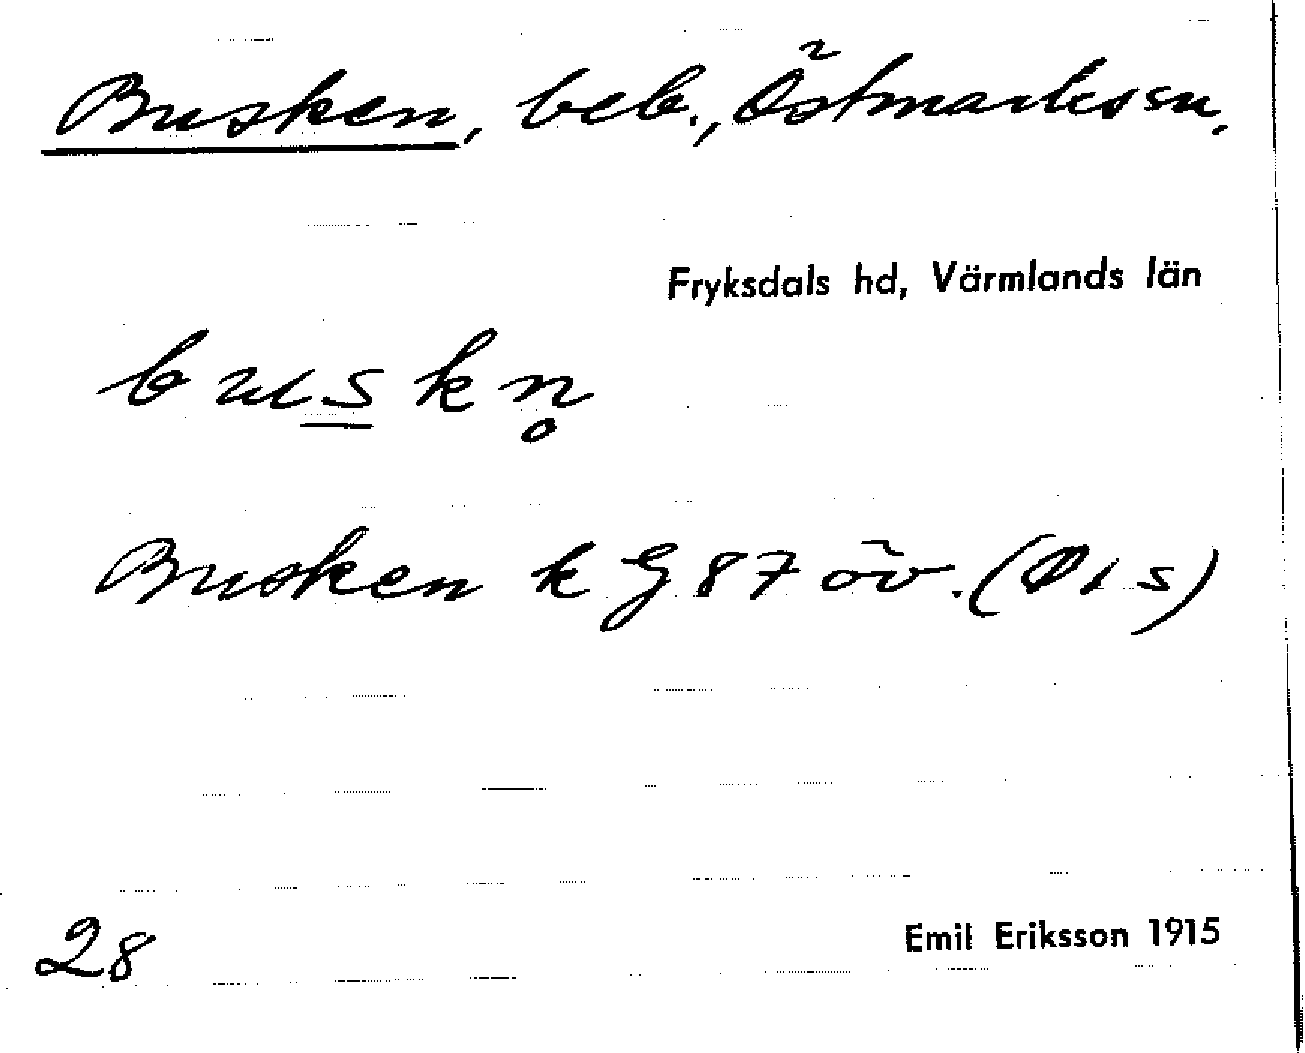 Busken, beb., Östmarks sn,
Fryksdals hd, Värmlands län
buskn̥
Busken k G 87 öv.
28
Emil Eriksson 1915